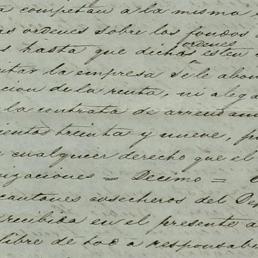 a competan a la misma
as ordenes sobre los fondos
s hasta que dichas ordenes esten
itar la empresa se le abon
cion de la renta, ni alega
la contrata de arrendam
ientos treinta y nueve, p
cualquier derecho que el
izaciones = Decimo =
cantones cosecheros del D
recibida en el presente a
libre de toda responsab